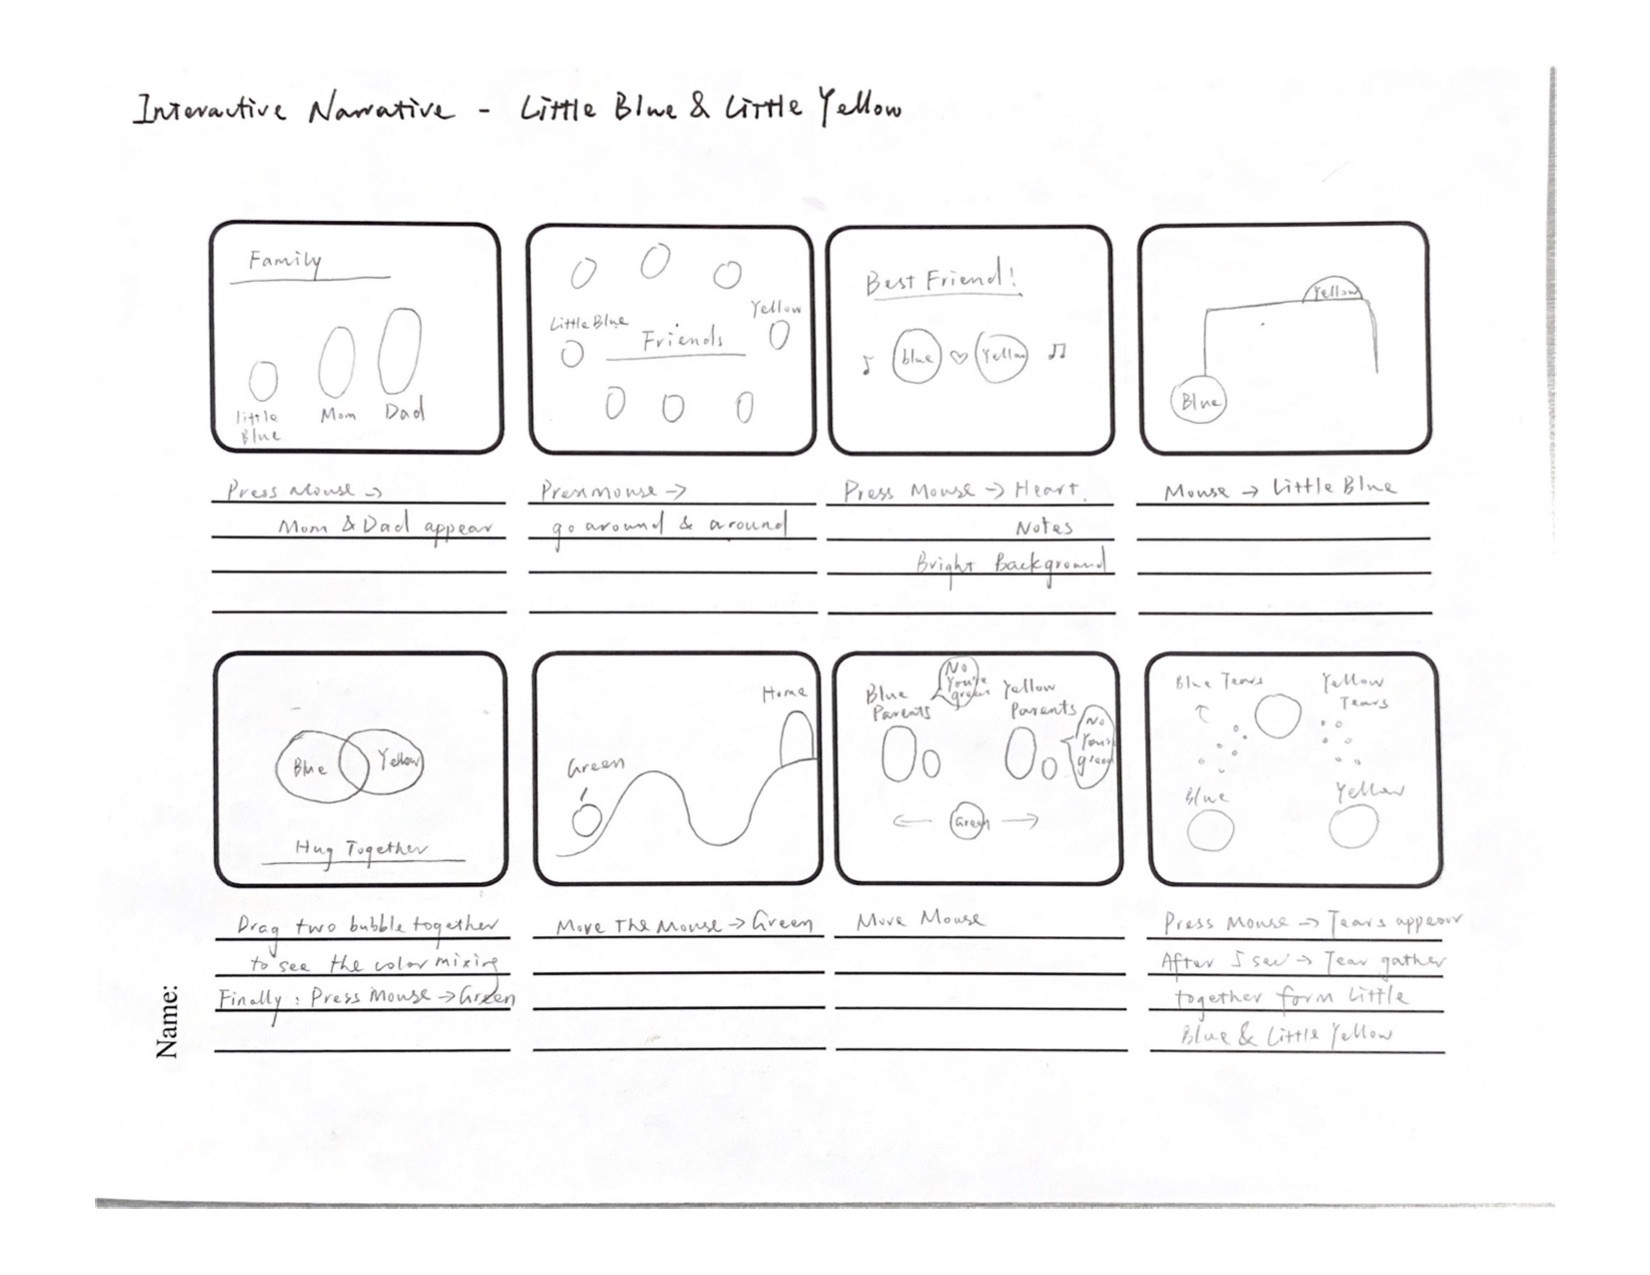 Interactive Narrative - Little Blue & Little Yellow
Family
little
Blue
Mom
Dad
Press Mouse →
Mom & Dad appear
Little Blue
Friends
Yellow
Press mouse →
go around & around
Best Friend!
blue
Yellow
Press Mouse → Heart.
Notes
Bright Background
Yellow
Blue
Mouse → Little Blue
Blue
Yellow
Hug Together
Drag two bubble together
to see the color mixing
Finally : Press Mouse → Green
Green
Home
Move The Mouse → Green
Blue
Parents
No
You're
green
Yellow
Parents
No
You're
green
Green
Move Mouse
Blue Tears
Yellow
Tears
Blue
Yellow
Press Mouse → Tears appear
After 5 sec → Tear gather
together form Little
Blue & Little Yellow
Name: